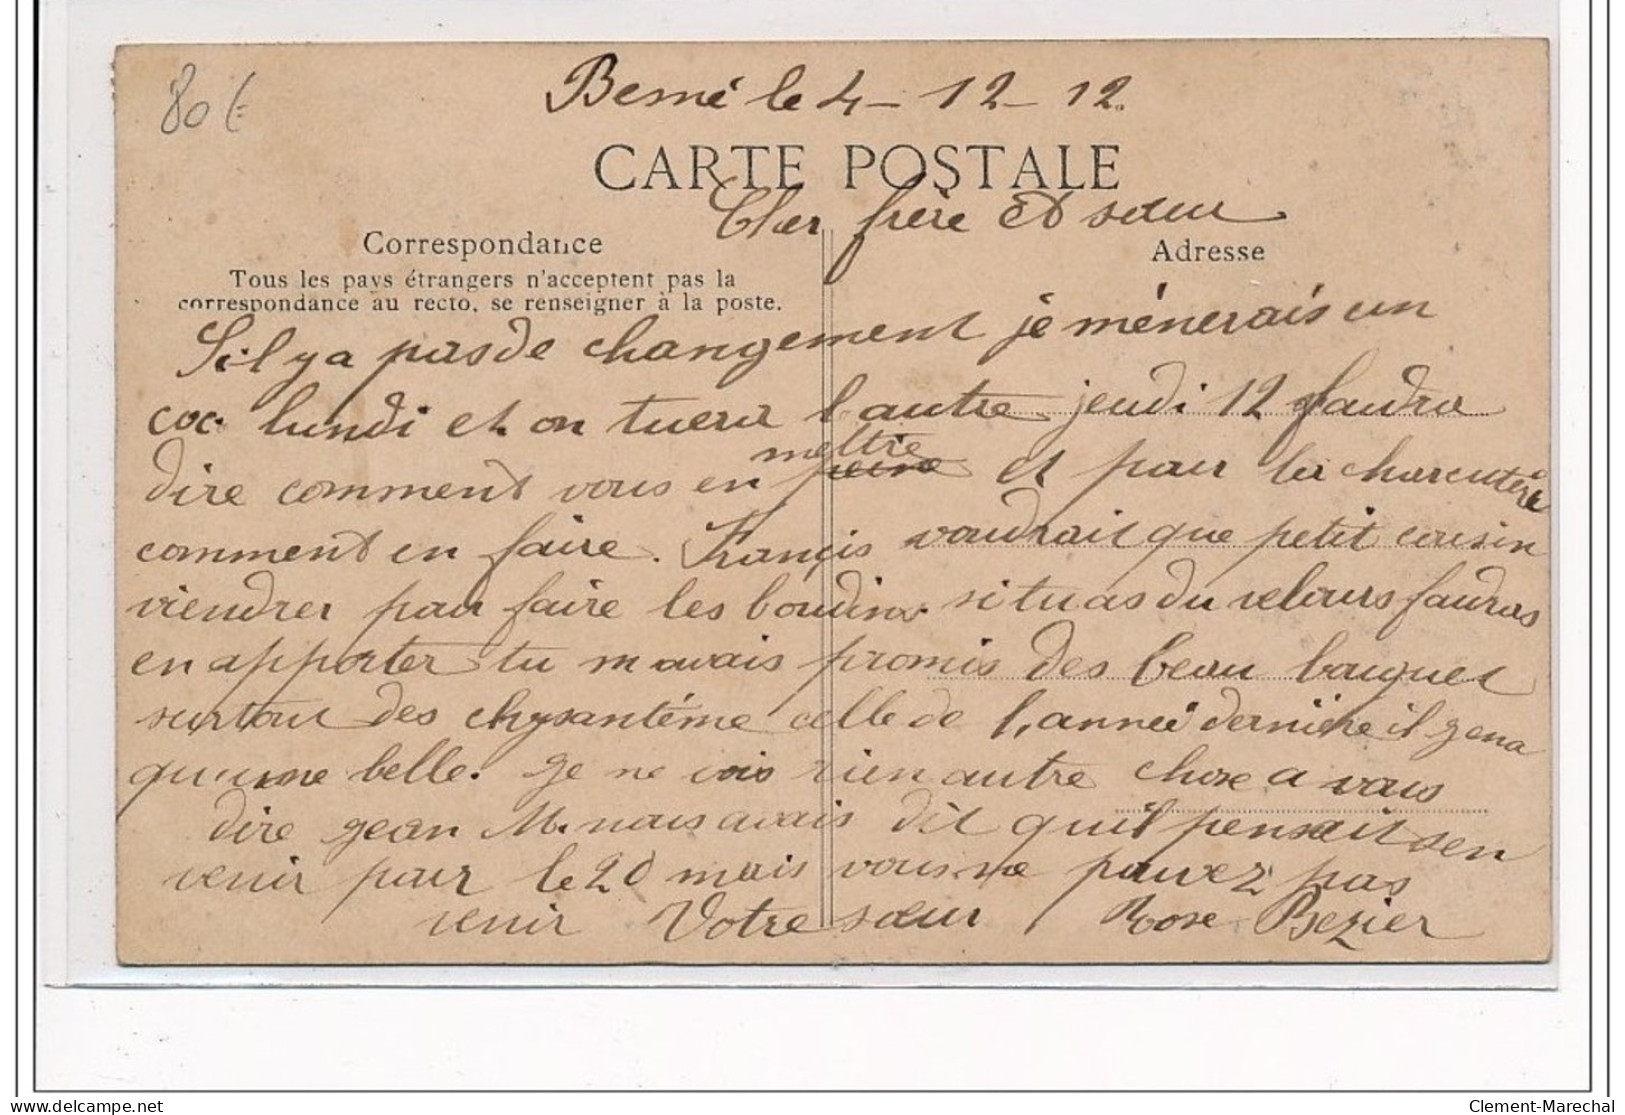 80 €
Besné le 4 - 12 - 12.
CARTE POSTALE
Cher frère et sœur
Correspondance
Adresse
Tous les pays étrangers n'acceptent pas la
correspondance au recto, se renseigner à la poste.
Sil y a pas de changement je ménerais un
coc lundi et on tuera l'autre jeudi 12 faudra
dire comment vous en mettre et pour la charcutérie
comment en faire. Françis voudrait que petit cousin
viendrer pour faire les boudins. si tu as du velours faudras
en apporter tu m'avais promis des beau bouquet
surtout des chysantéme celle de l'année dernière il y en a
qu'une belle. je ne vois rien autre chose a vous
dire jean M. nous avais dit qu'il pensait sen
venir pour le 20 mais vous ne pouvez pas
venir Votre sœur Rose Bezier
Clement-Marechal